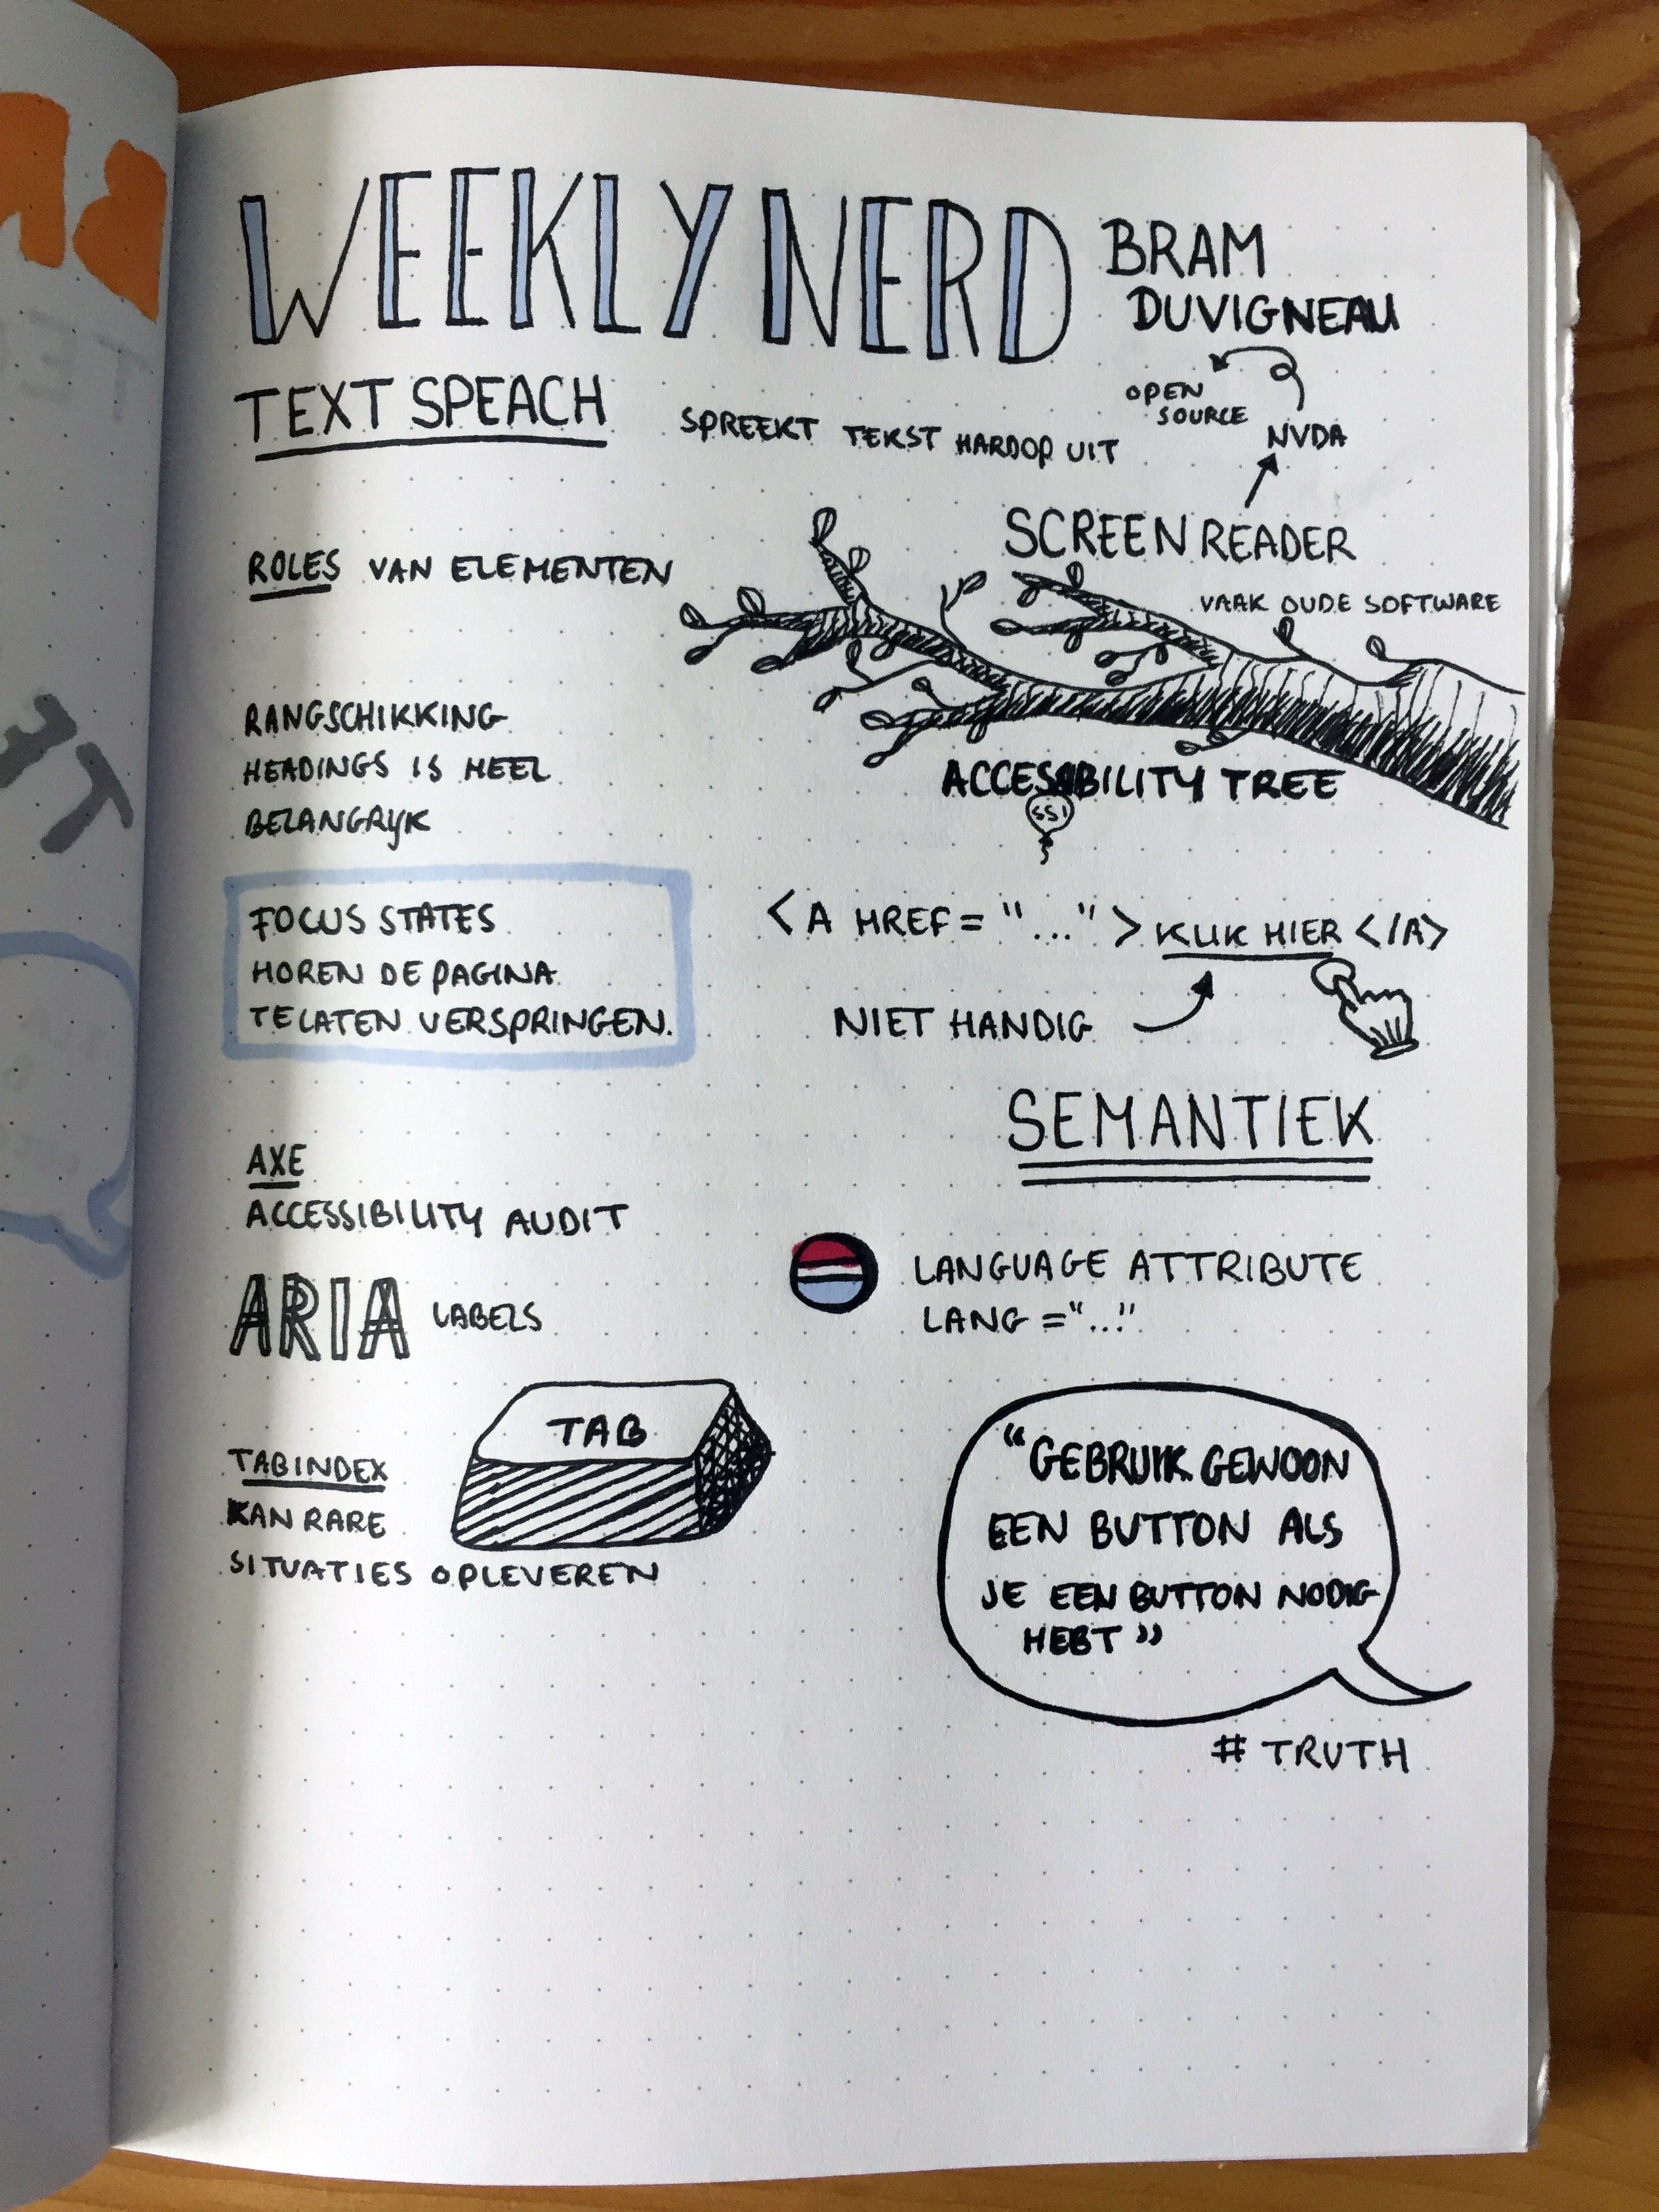 WEEKLY NERD
BRAM
DUVIGNEAU
TEXT SPEACH
SPREEKT TEKST HARDOP UIT
OPEN
SOURCE
NVDA
SCREEN READER
VAAK OUDE SOFTWARE
ROLES VAN ELEMENTEN
RANGSCHIKKING
HEADINGS IS HEEL
BELANGRYK
ACCESABILITY TREE
SSI
FOCUS STATES
HOREN DE PAGINA
TE LATEN VERSPRINGEN.
<A HREF="...">KLIK HIER</A>
NIET HANDIG
SEMANTIEK
AXE
ACCESSIBILITY AUDIT
ARIA LABELS
LANGUAGE ATTRIBUTE
LANG="..."
TAB
TABINDEX
KAN RARE
SITUATIES OPLEVEREN
"GEBRUIK GEWOON
EEN BUTTON ALS
JE EEN BUTTON NODIG
HEBT"
# TRUTH